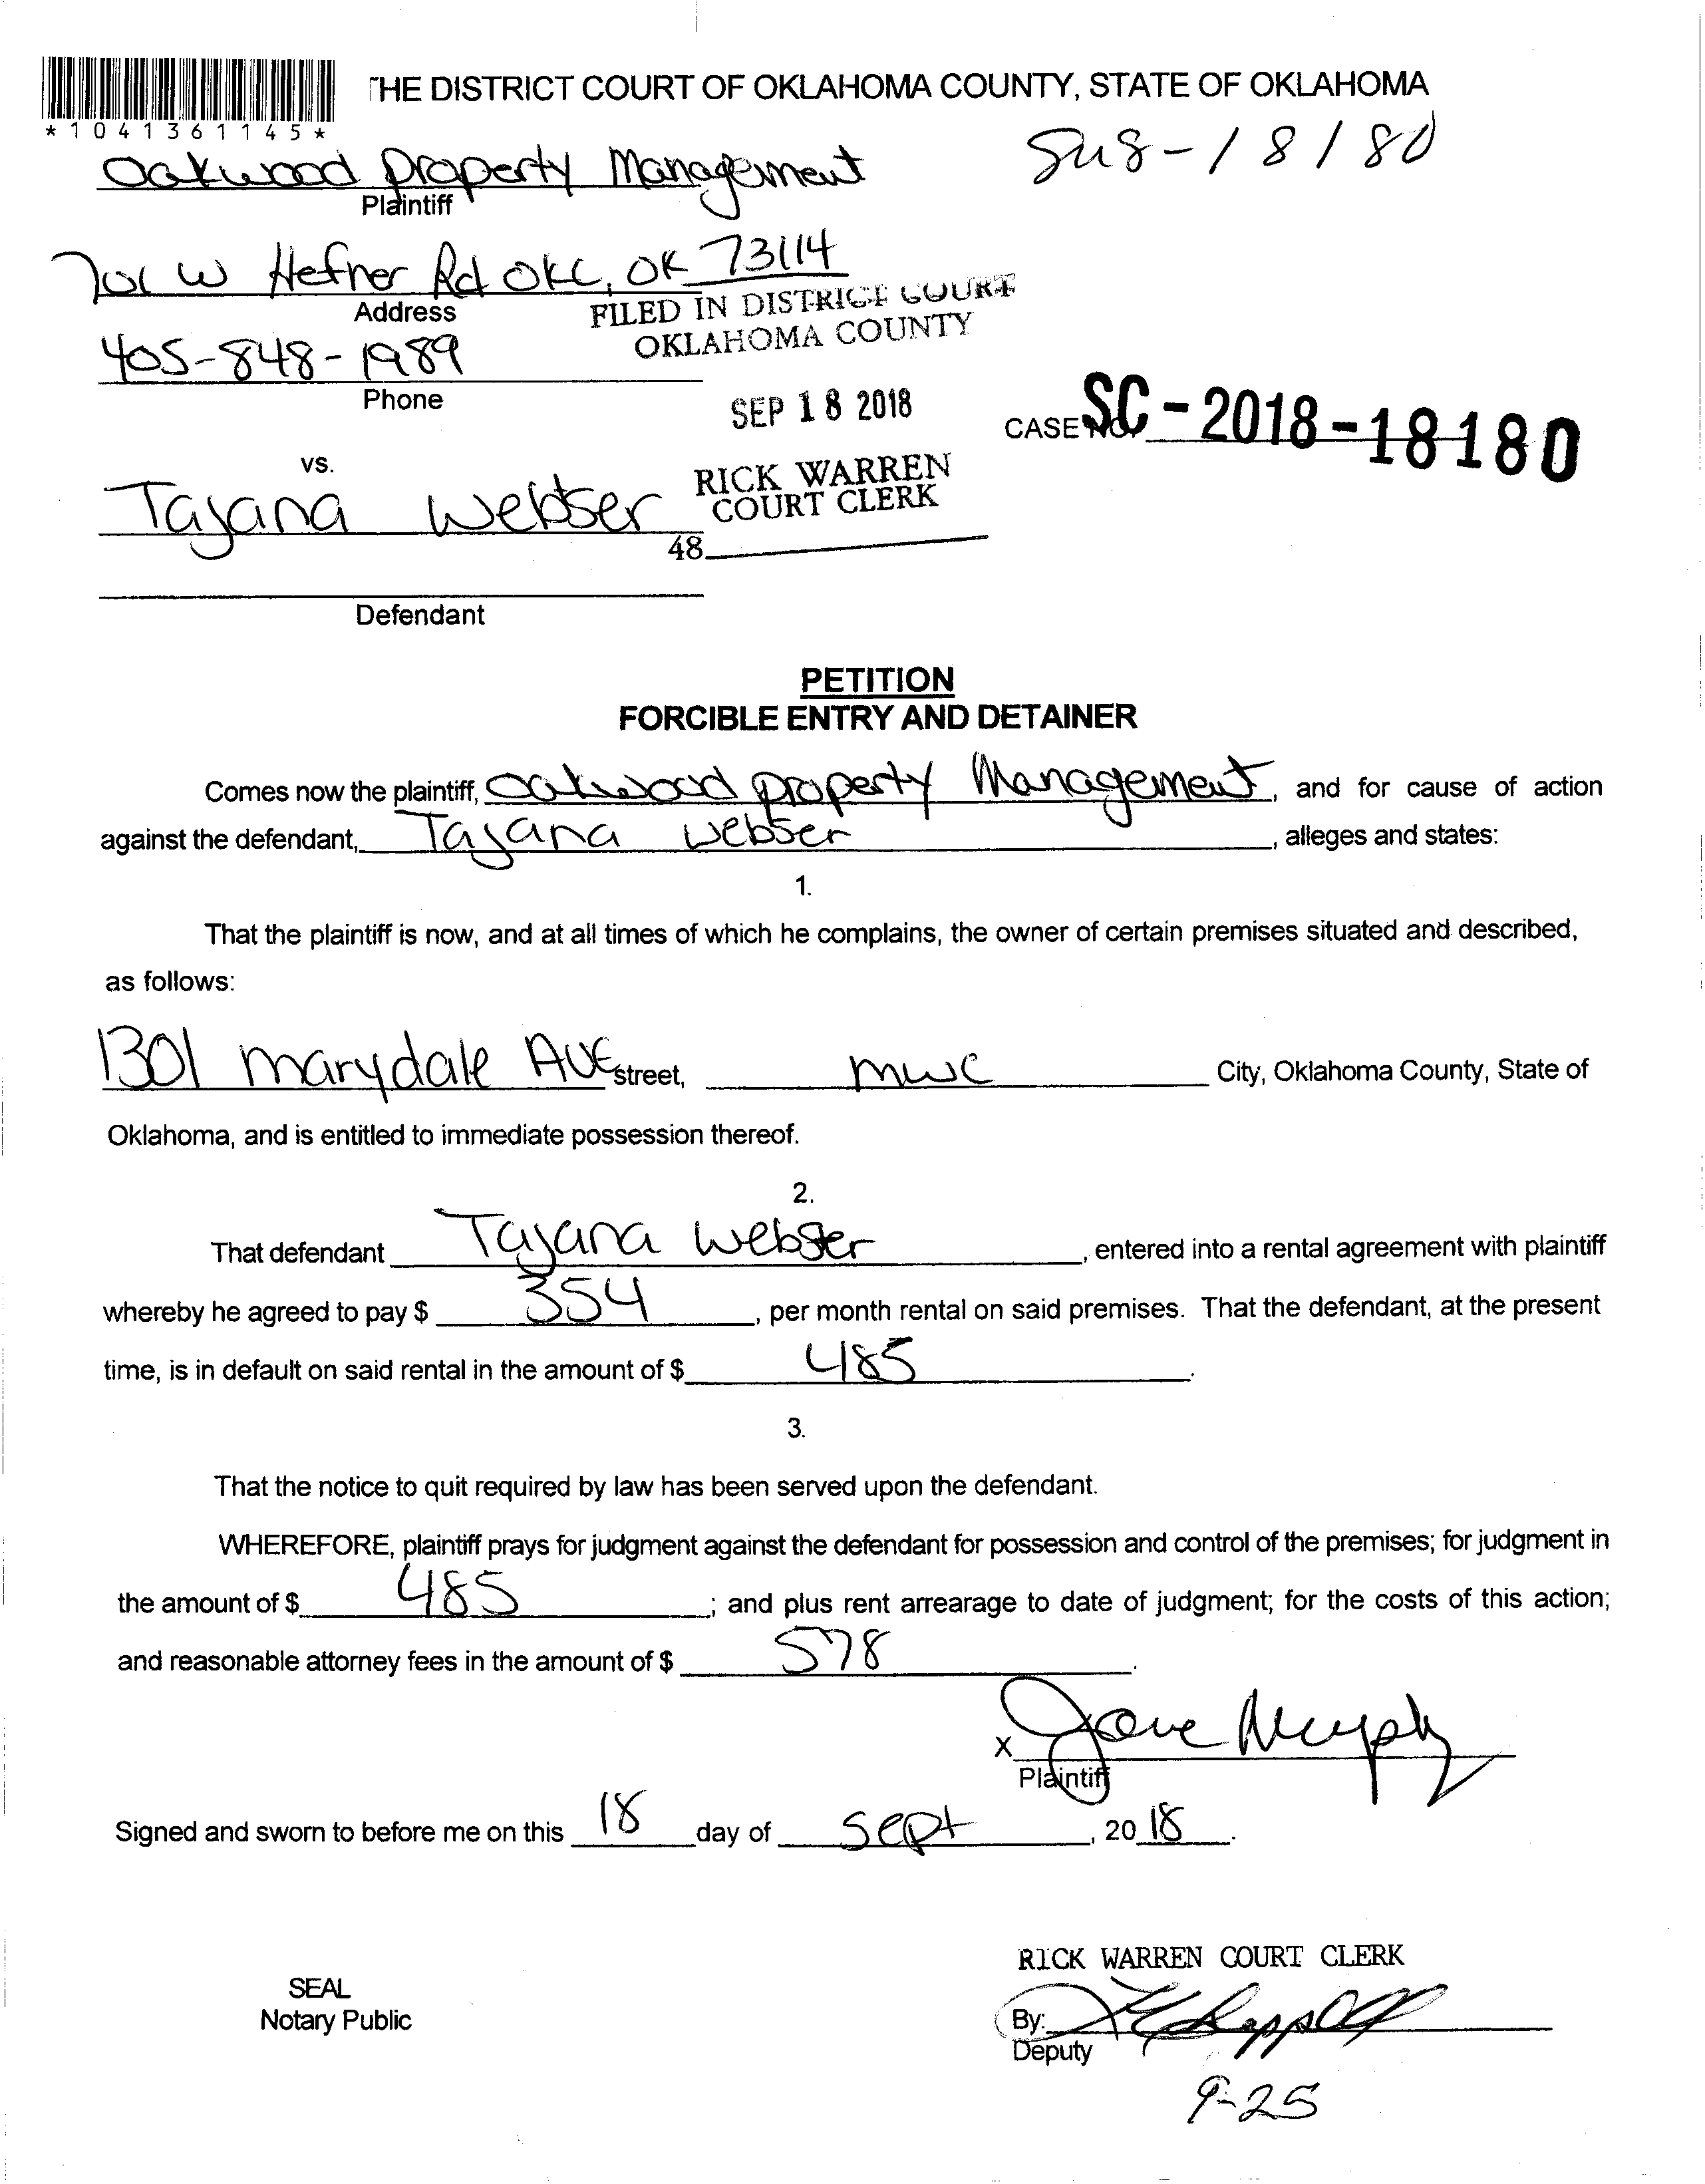 THE DISTRICT COURT OF OKLAHOMA COUNTY, STATE OF OKLAHOMA
*1041361145*
Oakwood Property Management
Plaintiff
18180
701 W Hefner Rd OKC, OK 73114
Address
FILED IN DISTRICT COURT
OKLAHOMA COUNTY
405-848-1989
Phone
SEP 18 2018
CASE NO. SC-2018-18180
vs.
RICK WARREN
COURT CLERK
Tajana Webster
48
Defendant
PETITION
FORCIBLE ENTRY AND DETAINER
Comes now the plaintiff, Oakwood Property Management, and for cause of action
against the defendant, Tajana Webser, alleges and states:
1.
That the plaintiff is now, and at all times of which he complains, the owner of certain premises situated and described,
as follows:
1301 Marydale Ave street, MWC City, Oklahoma County, State of
Oklahoma, and is entitled to immediate possession thereof.
2.
That defendant Tajana Webster, entered into a rental agreement with plaintiff
whereby he agreed to pay $ 354, per month rental on said premises. That the defendant, at the present
time, is in default on said rental in the amount of $ 485.
3.
That the notice to quit required by law has been served upon the defendant.
WHEREFORE, plaintiff prays for judgment against the defendant for possession and control of the premises; for judgment in
the amount of $ 485; and plus rent arrearage to date of judgment; for the costs of this action;
and reasonable attorney fees in the amount of $ 578.
X Murphy
Plaintiff
Signed and sworn to before me on this 18 day of Sept, 2018.
RICK WARREN COURT CLERK
SEAL
Notary Public
By:
Deputy
9-25